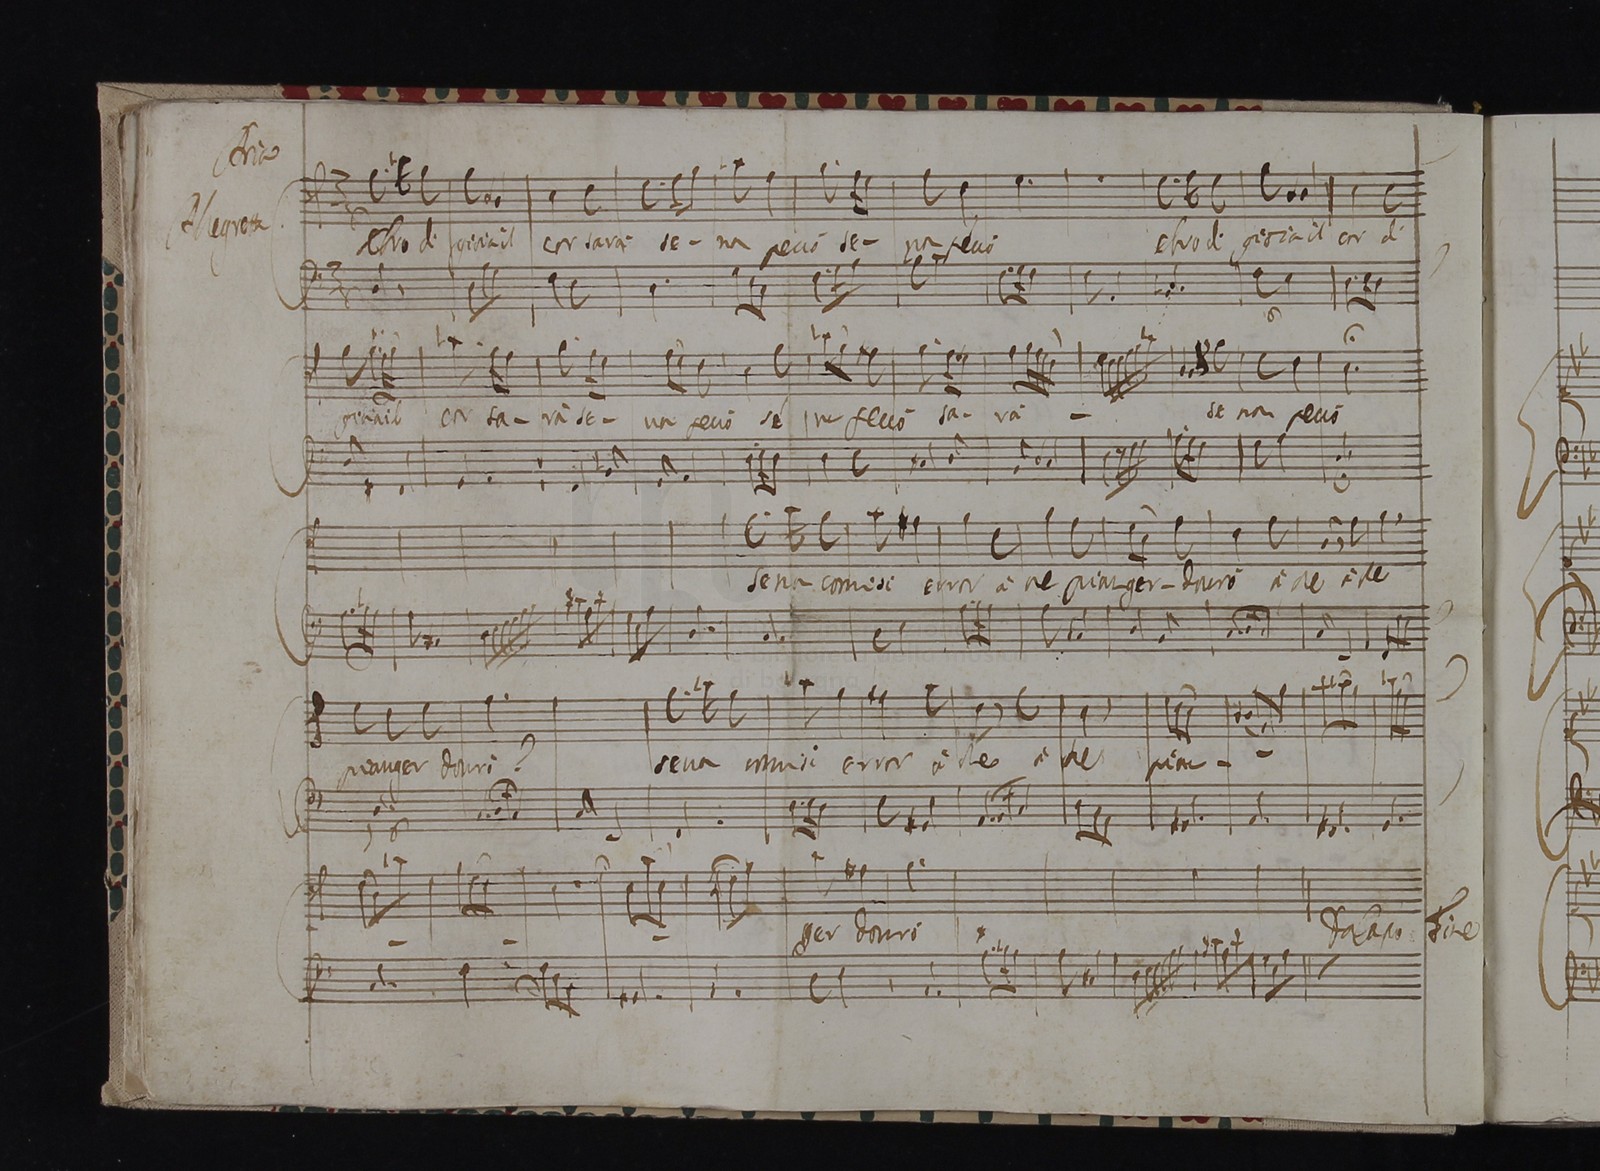 Aria
Allegretto
Ebro di gioia il cor sarà se- non peccò se- non peccò ebro di gioia il cor di
gioia il cor sa- rà se- non peccò se non peccò sa- rà - se non peccò
se non comisi error à che pianger- dovrò à che à che
pianger dovrò? se non comisi error à che à che pian- -
- - - ger dovrò Da Capo Fine
di bologna